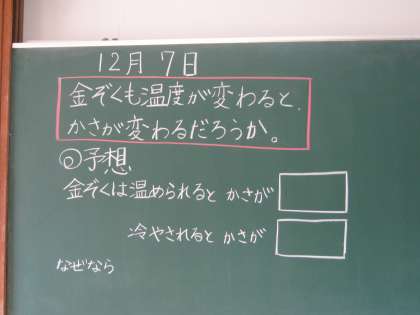 12月 7日
金ぞくも温度が変わると、
かさが変わるだろうか。
予想
金ぞくは温められると かさが
冷やされると かさが
なぜなら